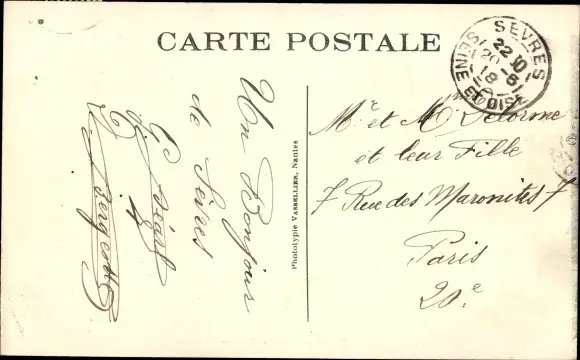 CARTE POSTALE
SEVRES
22 10
20-6
18
SEINE ET OISE
Un Bonjour
de Sèvres
Phototypie VASSELLIER, Nantes
Mr et Mme Delorme
et leur Fille
7 Rue des Maronites 7
Paris
20e